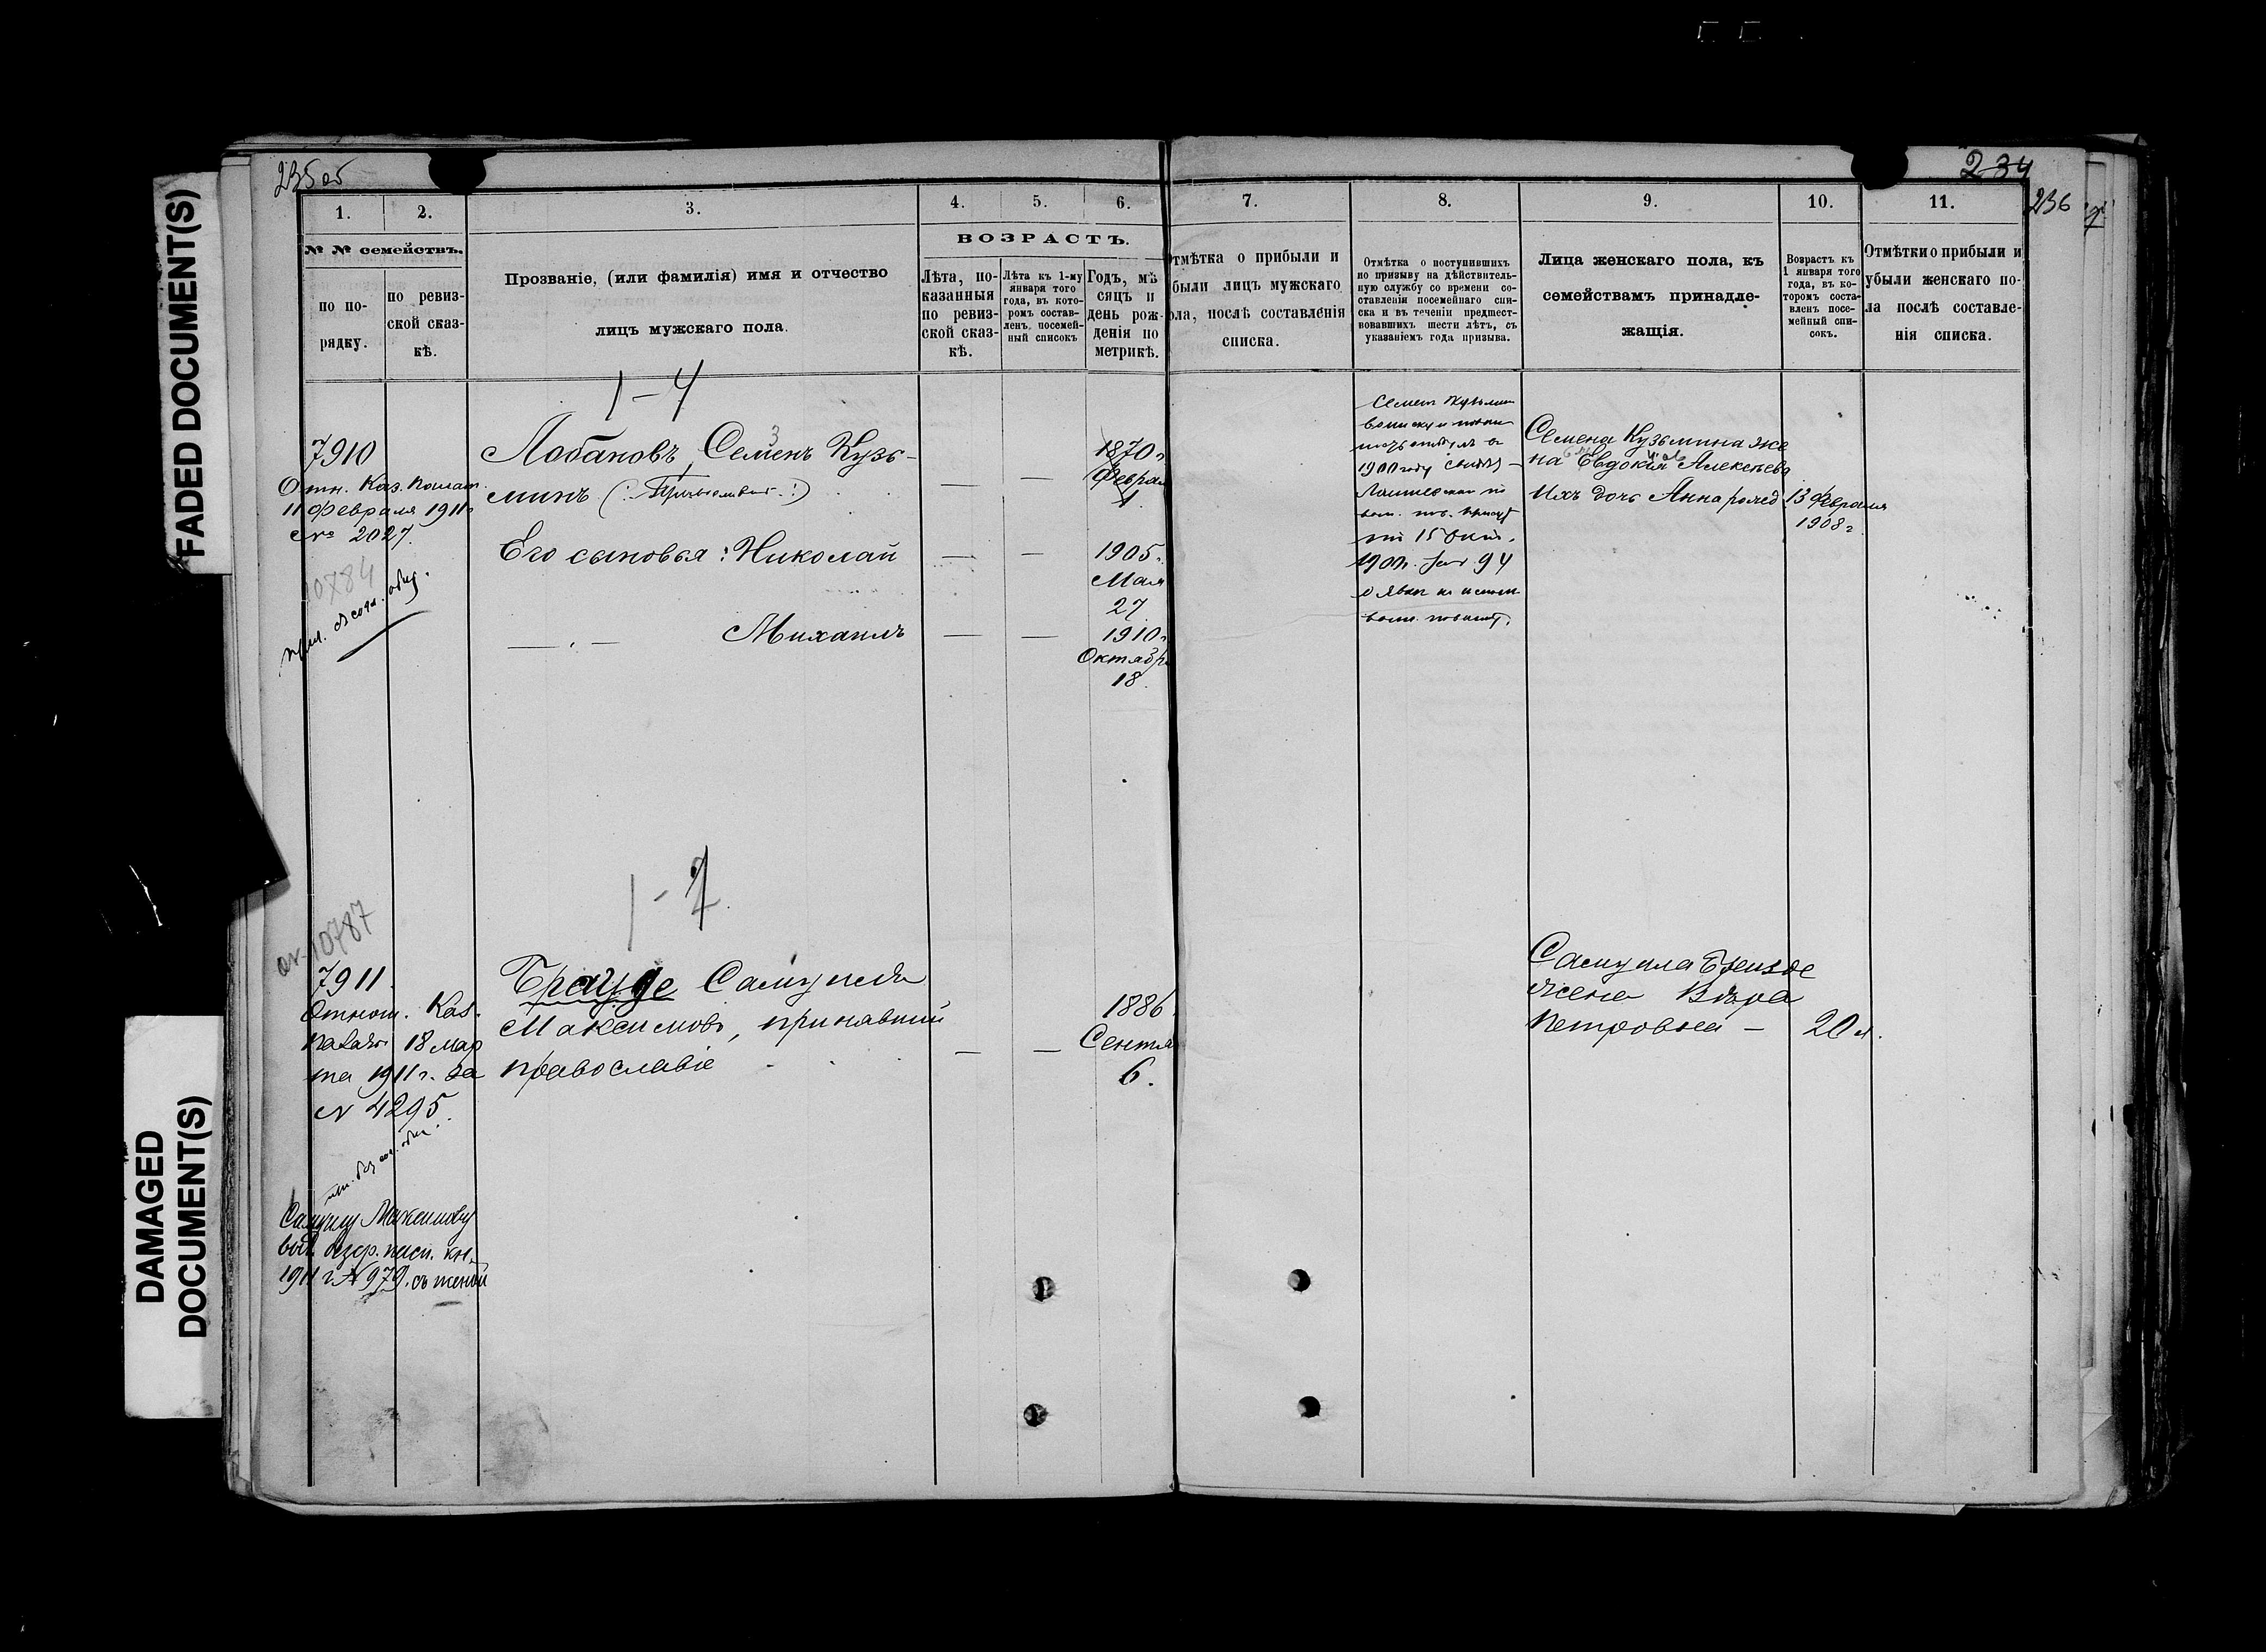 FADED DOCUMENT(S)
DAMAGED
DOCUMENT(S)
235 об
234
236
1.
2.
3.
4.
5.
6.
7.
8.
9.
10.
11.
№ № семействъ.
по по-
рядку.
по ревиз-
ской сказ-
кѣ.
Прозваніе, (или фамилія) имя и отчество
лицъ мужскаго пола.
ВОЗРАСТЪ.
Лѣта, по-
казанныя
по ревиз-
ской сказ-
кѣ.
Лѣта къ 1-му
января того
года, въ кото-
ромъ состав-
ленъ посемей-
ный списокъ
Годъ, мѣ
сяцъ и
день рож-
денія по
метрикѣ.
тмѣтка о прибыли и
были лицъ мужскаго
ола, послѣ составленія
списка.
Отмѣтка о поступившихъ
по призыву на дѣйствитель-
ную службу со времени со-
ставленія посемейнаго спи-
ска и въ теченіи предшест-
вовавшихъ шести лѣтъ, съ
указаніемъ года призыва.
Лица женскаго пола, къ
семействамъ принадле-
жащія.
Возрастъ къ
1 января того
года, въ ко-
торомъ соста-
вленъ посе-
мейный спи-
сокъ.
Отмѣтки о прибыли и
убыли женскаго по-
ла послѣ составле-
нія списка.
1-4
7910
Отн. Каз. Палат.
11 февраля 1911 г
№ 2027.
10784
Лобановъ, Семенъ Кузь-
минъ
Его сыновья: Николай
Михаилъ
1870 г
Феврал
1
1905 г
Мая
27
1910 г
Октябр
18
Семен Кузьмин
1900 году
15
1900 г. за № 94
Семена Кузьмина же
на Евдокія Алексѣева
Ихъ дочь Анна рожд. 13 февраля
1908 г
1-2
10787
7911.
Относ. Каз.
палаты 18 мар
та 1911 г. за
№ 4295.
Самуилу Максимову
выд. безср. пасп. кн.
1911 г № 979. съ женой
Брауде Самуилъ
Максимовъ, принявшій
православіе
1886
Сентя
6.
Самуила Брауде
жена Вѣра
Петровна — 20 л.